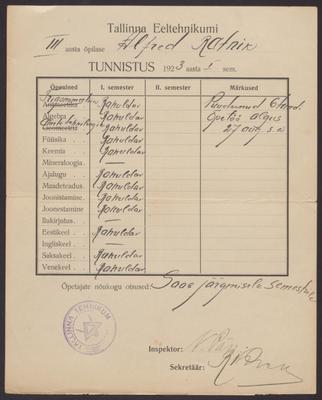 Tallinna Eeltehnikumi
III aasta õpilase Alfred Ratnik
TUNNISTUS 1923 aasta I sem.
Õpeained I. semester II. semester Märkused
Trigonomeetria Rahuldav Puudunud 6 tundi.
Algebra Rahuldav Õpetöö algus
Geomeetria Rahuldav 27 aug. s.a.
Füüsika Rahuldav
Keemia Rahuldav
Mineraloogia —
Ajalugu Rahuldav
Maadeteadus Rahuldav
Joonistamine Rahuldav
Joonestamine Rahuldav
Ilukirjutus —
Eestikeel Rahuldav
Ingliskeel —
Saksakeel Rahuldav
Venekeel Rahuldav
Õpetajate nõukogu otsused: Saab järgmisele semestrile
TALLINNA TEHNIKUM
Inspektor:
Sekretäär: